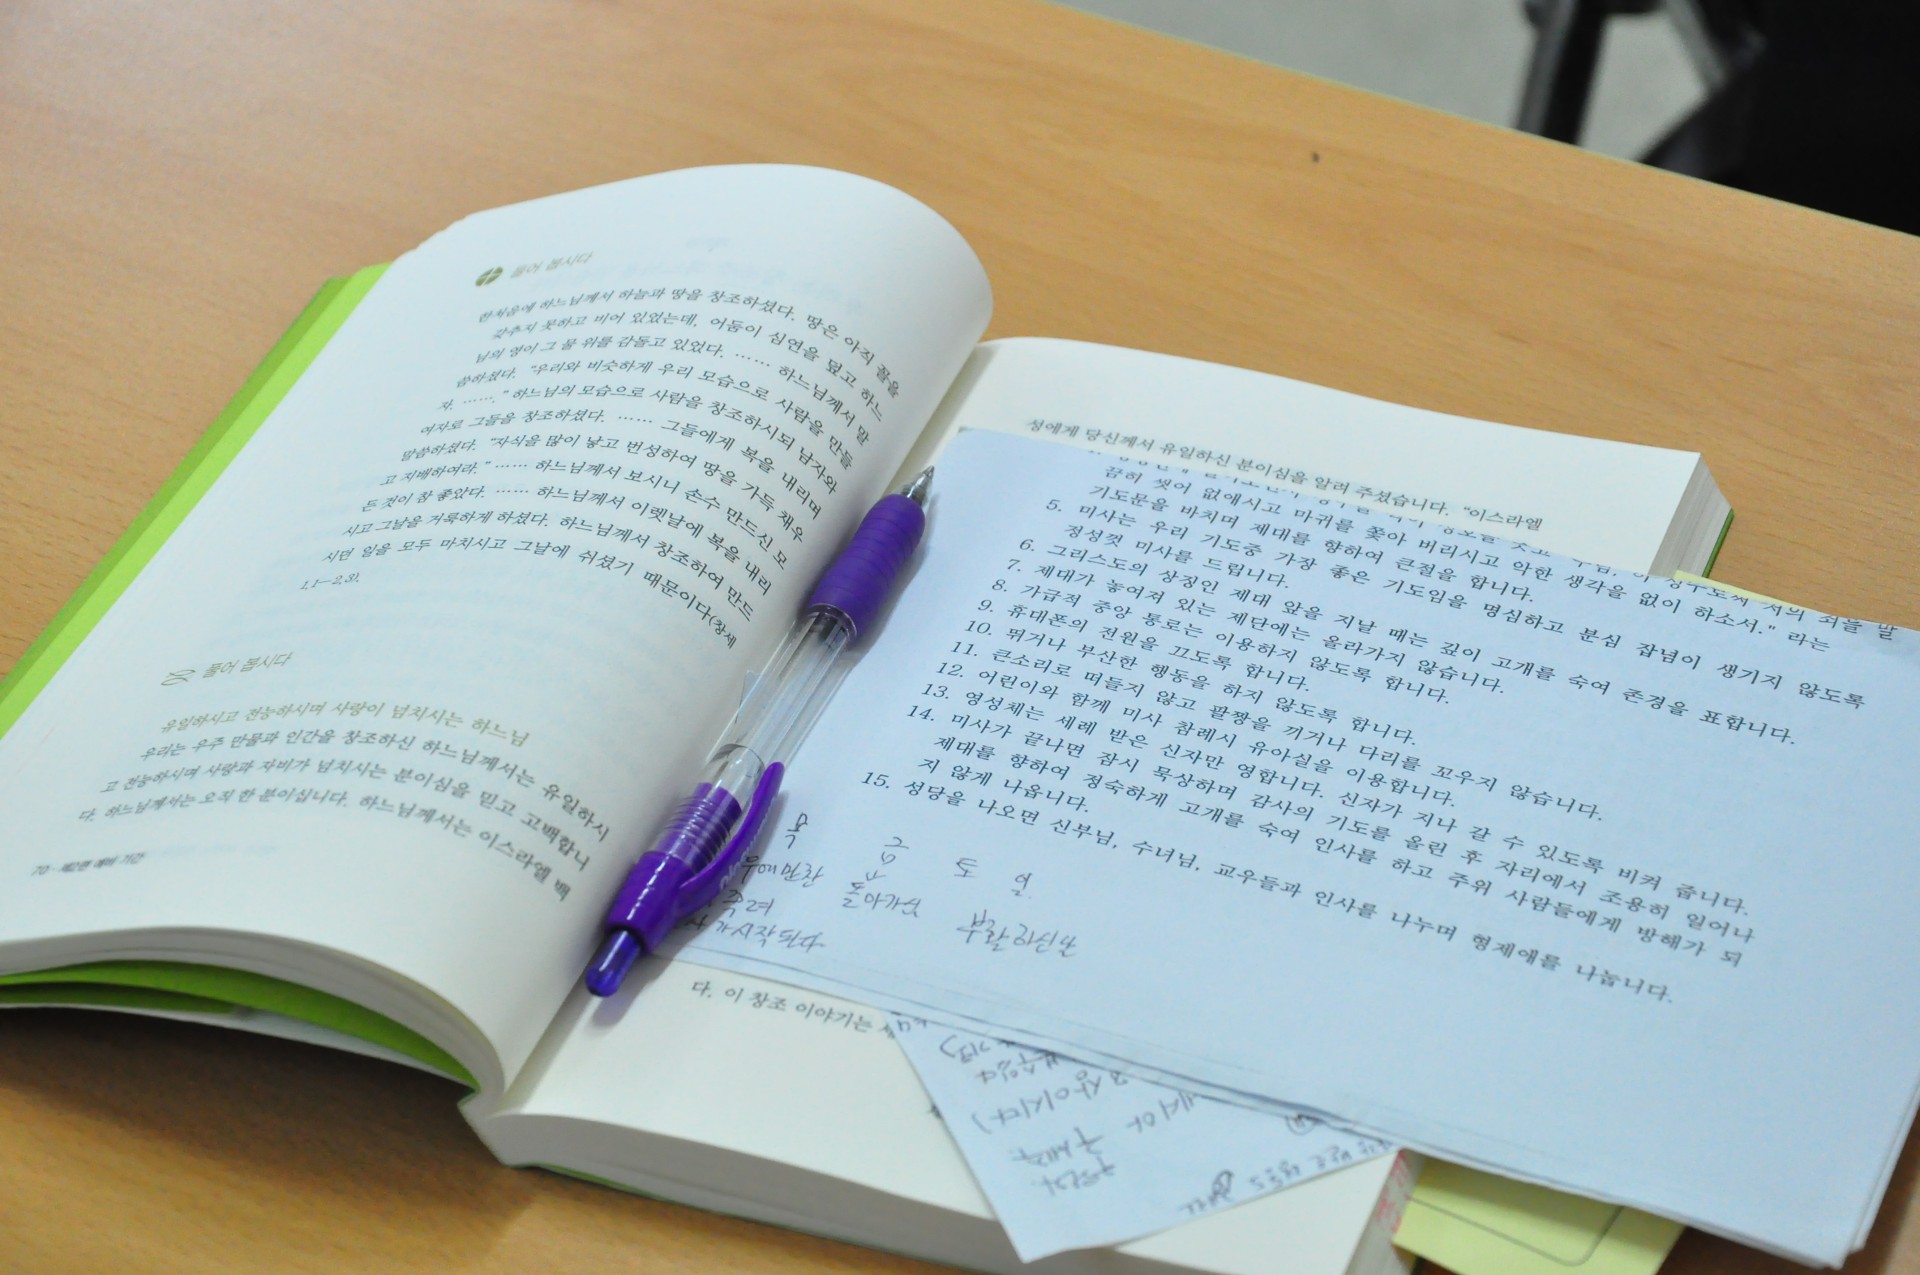 풀어 봅시다
한처음에 하느님께서 하늘과 땅을 창조하셨다. 땅은 아직 꼴을
갖추지 못하고 비어 있었는데, 어둠이 심연을 덮고 하느
님의 영이 그 물 위를 감돌고 있었다. …… 하느님께서 말
씀하셨다. “우리와 비슷하게 우리 모습으로 사람을 만들
자. …….” 하느님의 모습으로 사람을 창조하시되 남자와
여자로 그들을 창조하셨다. …… 그들에게 복을 내리며
말씀하셨다. “자식을 많이 낳고 번성하여 땅을 가득 채우
고 지배하여라.” …… 하느님께서 보시니 손수 만드신 모
든 것이 참 좋았다. …… 하느님께서 이렛날에 복을 내리
시고 그날을 거룩하게 하셨다. 하느님께서 창조하여 만드
시던 일을 모두 마치시고 그날에 쉬셨기 때문이다(창세
1,1—2,3).
풀어 봅시다
유일하시고 전능하시며 사랑이 넘치시는 하느님
우리는 우주 만물과 인간을 창조하신 하느님께서는 유일하시
고 전능하시며 사랑과 자비가 넘치시는 분이심을 믿고 고백합니
다. 하느님께서는 오직 한 분이십니다. 하느님께서는 이스라엘 백
70 · 제2편 예비 기간
성에게 당신께서 유일하신 분이심을 알려 주셨습니다. “이스라엘
끔히 씻어 없애시고 마귀를 쫓아 버리시고 악한 생각을 없이 하소서." 라는
기도문을 바치며 제대를 향하여 큰절을 합니다.
5. 미사는 우리 기도중 가장 좋은 기도임을 명심하고 분심 잡념이 생기지 않도록
정성껏 미사를 드립니다.
6. 그리스도의 상징인 제대 앞을 지날 때는 깊이 고개를 숙여 존경을 표합니다.
7. 제대가 놓여져 있는 제단에는 올라가지 않습니다.
8. 가급적 중앙 통로는 이용하지 않도록 합니다.
9. 휴대폰의 전원을 끄도록 합니다.
10. 뛰거나 부산한 행동을 하지 않도록 합니다.
11. 큰소리로 떠들지 않고 팔짱을 끼거나 다리를 꼬우지 않습니다.
12. 어린이와 함께 미사 참례시 유아실을 이용합니다.
13. 영성체는 세례 받은 신자만 영합니다. 신자가 지나 갈 수 있도록 비켜 줍니다.
14. 미사가 끝나면 잠시 묵상하며 감사의 기도를 올린 후 자리에서 조용히 일어나
제대를 향하여 정숙하게 고개를 숙여 인사를 하고 주위 사람들에게 방해가 되
지 않게 나옵니다.
15. 성당을 나오면 신부님, 수녀님, 교우들과 인사를 나누며 형제애를 나눕니다.
목 그 토 일
돌아가심
시작된다.
부활하신날
다. 이 창조 이야기는